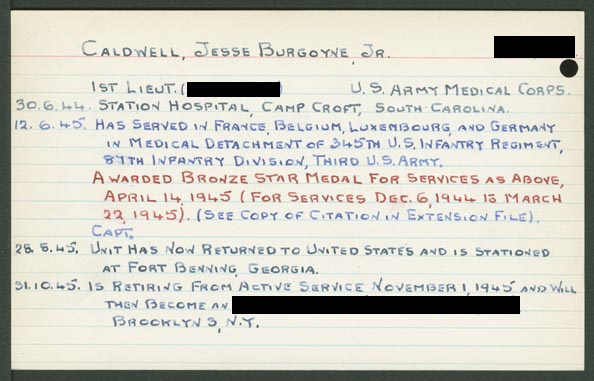 CALDWELL, JESSE BURGOYNE, JR.
1ST LIEUT. ( ) U.S. ARMY MEDICAL CORPS.
30.6.44. STATION HOSPITAL, CAMP CROFT, SOUTH CAROLINA.
12.6.45. HAS SERVED IN FRANCE, BELGIUM, LUXEMBOURG AND GERMANY
IN MEDICAL DETACHMENT OF 345TH U.S. INFANTRY REGIMENT,
87TH INFANTRY DIVISION, THIRD U.S. ARMY.
AWARDED BRONZE STAR MEDAL FOR SERVICES AS ABOVE,
APRIL 14, 1945 (FOR SERVICES DEC. 6, 1944 TO MARCH
22, 1945). (SEE COPY OF CITATION IN EXTENSION FILE).
CAPT.
28.8.45. UNIT HAS NOW RETURNED TO UNITED STATES AND IS STATIONED
AT FORT BENNING, GEORGIA.
31.10.45. IS RETIRING FROM ACTIVE SERVICE NOVEMBER 1, 1945 AND WILL
THEN BECOME AN
BROOKLYN 3, N.Y.